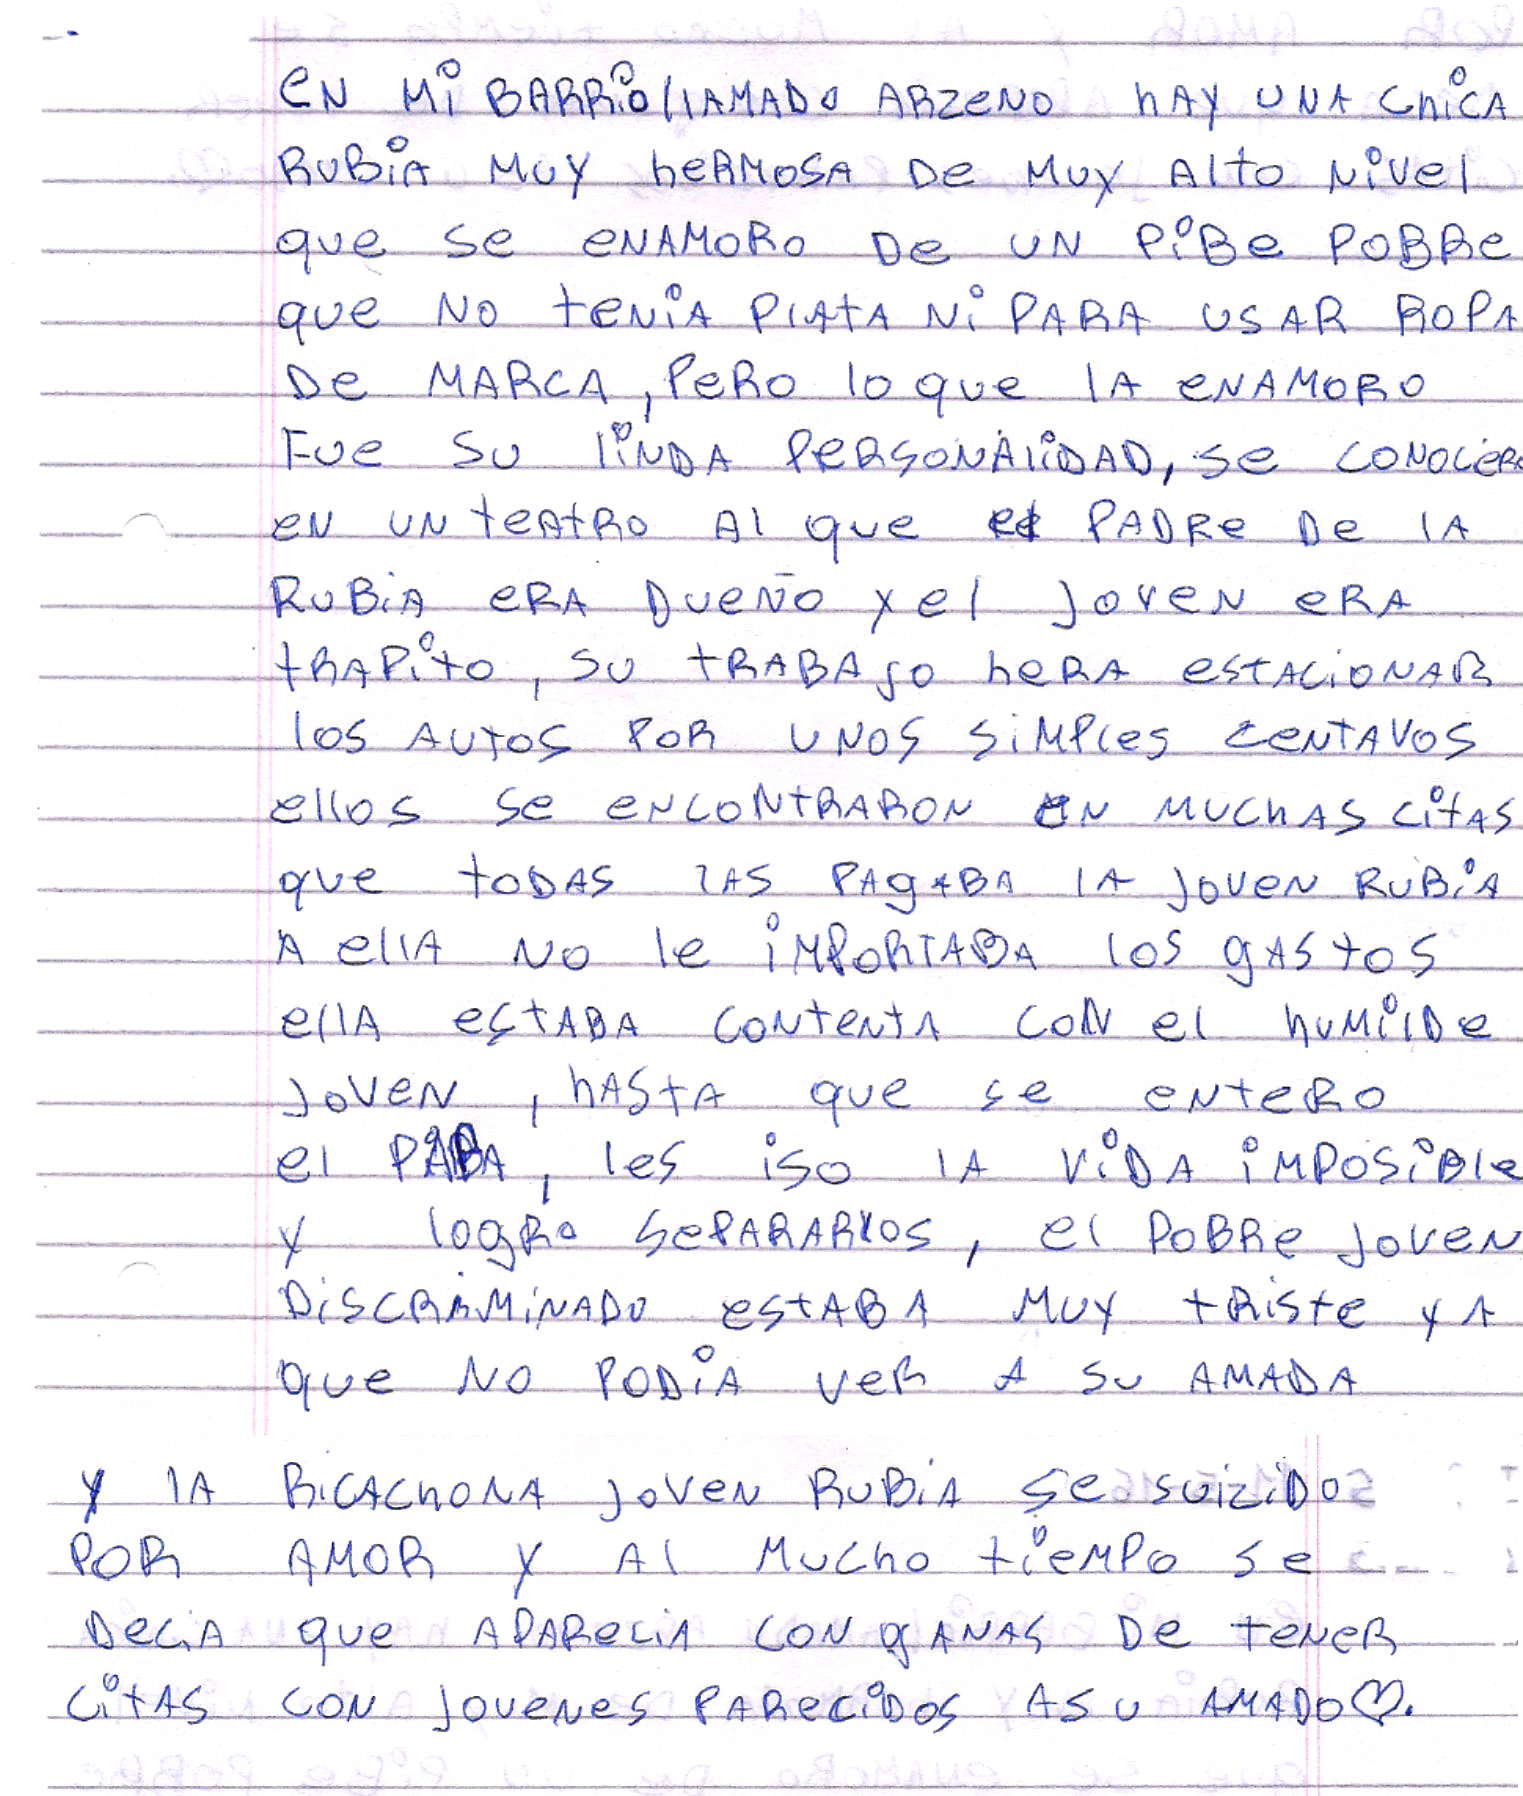 EN Mi BARRio llAMADO ARZENO hAY UNA ChiCA
RUBiA MUY heRMOSA De MUY Alto Nivel
que se eNAMORO De UN PiBe POBRe
que NO teNiA PlAtA Ni PARA USAR ROPA
De MARCA, PeRO lo que lA eNAMORO
Fue SU liNDA PeRSONAliDAD, se CONOCieRo
eN UN teAtRO Al que el PADRe De lA
RUBiA eRA DueÑO y el JOVeN eRA
tRAPito, SU tRABAJO heRA eStACiONAR
los AUTOS POR UNOS SiMPles CeNTAVOS
ellos Se eNCONtRARON eN MUChAS CitAS
que toDAS lAS PAgABA lA JoveN RUBiA
A ellA NO le iMPORTABA los gAStOS
ellA eStABA CONteNtA CON el hUMilDe
JoVeN, hAStA que se eNteRO
el PAPA, les iSO lA ViDA iMPOSiBle
Y logRo SePARARlOS, el POBRe JoveN
DiSCRiMiNADO eStABA MUY tRiSte YA
que NO PODiA VeR A SU AMADA
Y lA RiCAChONA JoVeN RUBiA Se SUiZiDO
POR AMOR Y Al MUCho tieMPo Se
DeCiA que APAReCiA CON gANAS De teNeR
CitAS CON JoveNeS PAReCiDOS A SU AMADO♡.